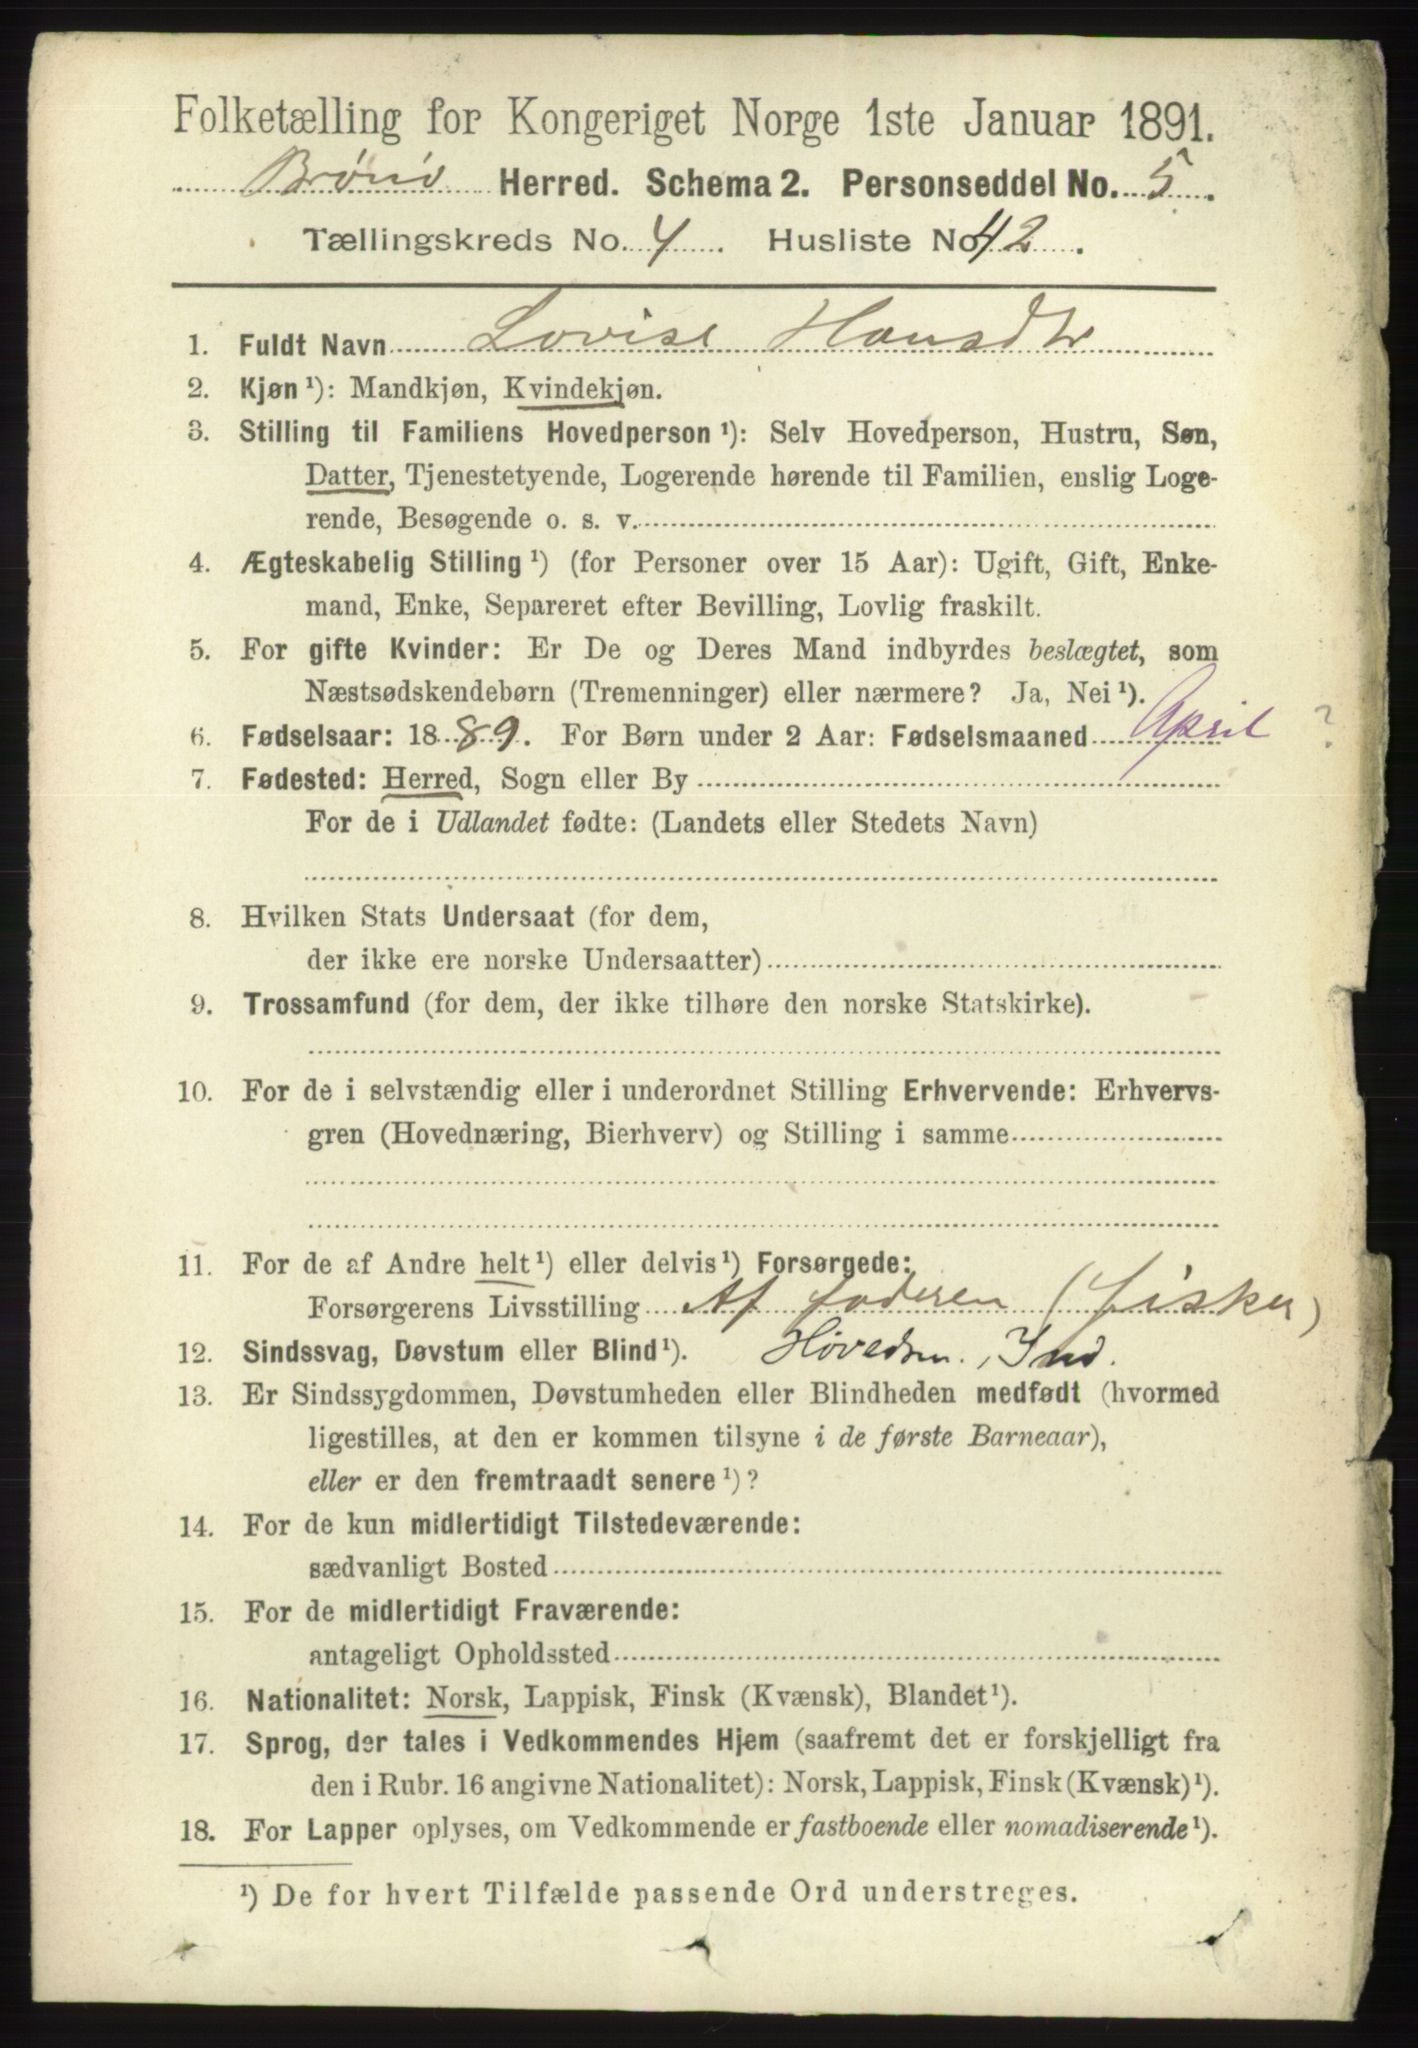 Folketælling for Kongeriget Norge 1ste Januar 1891.
Brønø Herred. Schema 2. Personseddel No. 5.
Tællingskreds No. 4. Husliste No. 42.
1. Fuldt Navn Lovise Hansdtr
2. Kjøn ¹): Mandkjøn, Kvindekjøn.
3. Stilling til Familiens Hovedperson ¹): Selv Hovedperson, Hustru, Søn,
Datter, Tjenestetyende, Logerende hørende til Familien, enslig Loge-
rende, Besøgende o. s. v.
4. Ægteskabelig Stilling ¹) (for Personer over 15 Aar): Ugift, Gift, Enke-
mand, Enke, Separeret efter Bevilling, Lovlig fraskilt.
5. For gifte Kvinder: Er De og Deres Mand indbyrdes beslægtet, som
Næstsødskendebørn (Tremenninger) eller nærmere? Ja, Nei ¹).
6. Fødselsaar: 1889. For Børn under 2 Aar: Fødselsmaaned April ?
7. Fødested: Herred, Sogn eller By
For de i Udlandet fødte: (Landets eller Stedets Navn)
8. Hvilken Stats Undersaat (for dem,
der ikke ere norske Undersaatter)
9. Trossamfund (for dem, der ikke tilhøre den norske Statskirke).
10. For de i selvstændig eller i underordnet Stilling Erhvervende: Erhvervs-
gren (Hovednæring, Bierhverv) og Stilling i samme
11. For de af Andre helt ¹) eller delvis ¹) Forsørgede:
Forsørgerens Livsstilling Af faderen (fisker)
12. Sindssvag, Døvstum eller Blind ¹). Ind.
13. Er Sindssygdommen, Døvstumheden eller Blindheden medfødt (hvormed
ligestilles, at den er kommen tilsyne i de første Barneaar),
eller er den fremtraadt senere ¹)?
14. For de kun midlertidigt Tilstedeværende:
sædvanligt Bosted
15. For de midlertidigt Fraværende:
antageligt Opholdssted
16. Nationalitet: Norsk, Lappisk, Finsk (Kvænsk), Blandet ¹).
17. Sprog, der tales i Vedkommendes Hjem (saafremt det er forskjelligt fra
den i Rubr. 16 angivne Nationalitet): Norsk, Lappisk, Finsk (Kvænsk) ¹).
18. For Lapper oplyses, om Vedkommende er fastboende eller nomadiserende ¹).
¹) De for hvert Tilfælde passende Ord understreges.